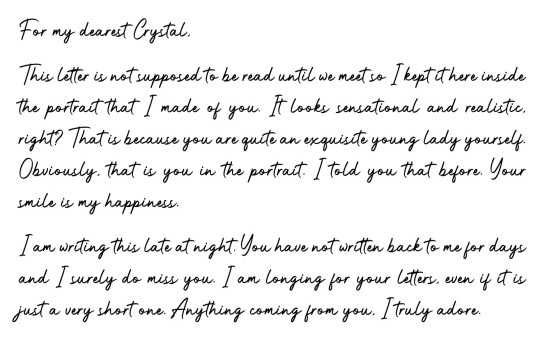 For my dearest Crystal,
This letter is not supposed to be read until we meet so I kept it here inside
the portrait that I made of you. It looks sensational and realistic,
right? That is because you are quite an exquisite young lady yourself.
Obviously, that is you in the portrait. I told you that before. Your
smile is my happiness.
I am writing this late at night. You have not written back to me for days
and I surely do miss you. I am longing for your letters, even if it is
just a very short one. Anything coming from you, I truly adore.